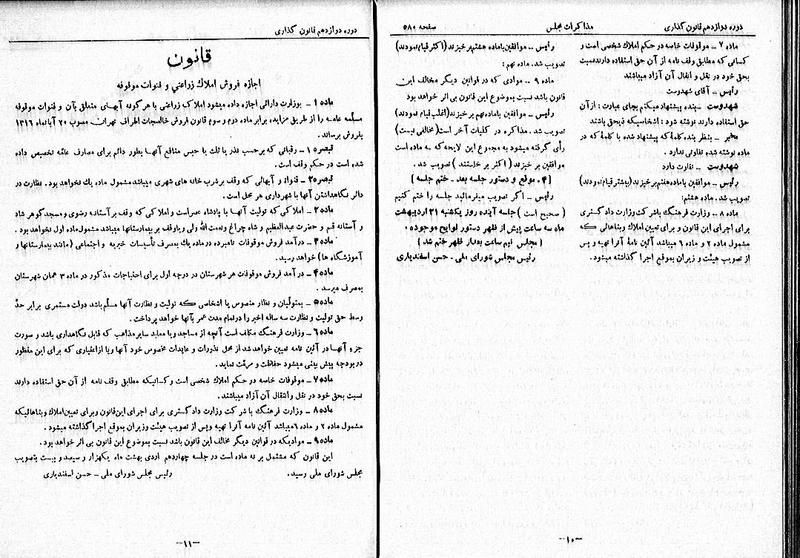 دوره دوازدهم قانون گذاری
مذاکرات مجلس
صفحه ۵۸۰
ماده ۷ ــ موقوفات خاصه در حکم املاك شخصی است و
کسانی که مطابق وقف نامه از آن حق استفاده دارند نسبت
بحق خود در نقل و انتقال آن آزاد میباشند
رئیس ــ آقای شهدوست
شهدوست ــ بنده پیشنهاد میکنم بجای عبارت : از آن
حق استفاده دارند نوشته شود : اشخاصیکه ذیحق باشند
مخبر ــ بنظر بنده کلمه‌ٔ که پیشنهاد شده با کلمهٔ که در
ماده نوشته شده تفاوتی ندارد .
شهدوست ــ تفاوت دارد
رئیس ــ موافقین باماده هفتم برخیزند (بیشتر قیام نمودند)
تصویب شد. ماده هشتم :
ماده ۸ ــ وزارت فرهنگ باشرکت وزارت دادگستری
برای اجرای این قانون و برای تعیین املاك و بناهائی که
مشمول ماده ۲ و ماده ۶ میباشد آئین نامهٔ آنرا تهیه و پس
از تصویب هیئت وزیران بموقع اجرا گذاشته میشود.
رئیس ــ موافقین باماده هشتم برخیزند (اکثر قیام نمودند)
تصویب شد. ماده نهم :
ماده ۹ ــ موادی که در قوانین دیگر مخالف این
قانون باشد نسبت بموضوع این قانون بی اثر خواهد بود
رئیس ــ موافقین باماده نهم برخیزند (اغلب قیام نمودند)
تصویب شد . مذاکره در کلیات آخر است (مخالفی نیست)
رأی گرفته میشود بمجموع این لایحه که نه ماده است
موافقین برخیزند (اکثر برخاستند) تصویب شد .
[ ۴ ـ موقع و دستور جلسه بعد ــ ختم جلسه ]
رئیس ــ اگر تصویب میفرمائید جلسه را ختم کنیم
( صحیح است ) جلسه آینده روز یکشنبه ۲۱ اردیبهشت
ماه سه ساعت پیش از ظهر دستور لوایح موجوده .
( مجلس نیم ساعت بعداز ظهر ختم شد )
رئیس مجلس شورای ملی ــ حسن اسفندیاری
ــ ۱۰ ــ
دوره دوازدهم قانون گذاری
قانون
اجازه فروش املاك زراعتی و قنوات موقوفه
ماده ۱ ــ بوزارت دارائی اجازه داده میشود املاك زراعتی با هر گونه آبهای متعلق بآن و قنوات موقوفه
مسلمه عامه را از طریق مزایده برابر ماده دوم و سوم قانون فروش خالصجات اطراف تهران مصوب ۲۰ آبانماه ۱۳۱۶
بفروش برساند .
تبصره ۱ ــ رقباتی که بر حسب نذر یا ثلث یا حبس منافع آنها بطور دائم برای مصارف عامه تخصیص داده
شده است در حکم وقف است .
تبصره ۲ ــ قنوات و آبهائی که وقف بر شرب خانه های شهری میباشد مشمول ماده يك نخواهد بود . نظارت در
دائر نگاهداشتن آنها با شهرداری هر محل است .
ماده ۲ ــ املاکی که تولیت آنها با پادشاه عصر است و املاکی که وقف بر آستانه رضوی و مسجد گوهر شاد
و آستانه قم و حضرت عبدالعظیم و شاه چراغ و نعمت الله ولی و یا وقف بر بیمارستانها میباشد مشمول ماده اول نخواهد بود .
ماده ۳ ــ درآمد فروش موقوفات نامبرده در ماده يك بمصرف تأسیسات خیریه و اجتماعی (مانند بیمارستانها و
آموزشگاه ها) خواهد رسید.
ماده ۴ ــ در آمد فروش موقوفات هر شهرستان در درجه اول برای احتیاجات مذکور در ماده ۳ همان شهرستان
بمصرف میرسد .
ماده ۵ ــ بمتولیان و نظار منصوص یا اشخاصی که تولیت و نظارت آنها مسلم باشد دولت مستمری برابر حد
وسط حق تولیت و نظارت سه ساله اخیر را در تمام مدت عمر بآنها خواهد پرداخت .
ماده ۶ ــ وزارت فرهنگ مکلف است آنچه از مساجد و یا معابد سایر مذاهب که قابل نگاهداری باشد و صورت
جزء آنها در آئین نامه تعیین خواهد شد از محل نذورات و عایدات مخصوص خود آنها و یا از اعتباری که برای این منظور
در بودجه پیش بینی میشود حفاظت و مرمت نماید .
ماده ۷ ــ موقوفات خاصه در حکم املاك شخصی است و کسانیکه مطابق وقف نامه از آن حق استفاده دارند
نسبت بحق خود در نقل و انتقال آن آزاد میباشند.
ماده ۸ ــ وزارت فرهنگ با شرکت وزارت دادگستری برای اجرای این قانون و برای تعیین املاك و بناهائیکه
مشمول ماده ۲ و ماده ۶ میباشد آئین نامه آنرا تهیه و پس از تصویب هیئت وزیران بموقع اجرا گذاشته میشود .
ماده ۹ ــ موادیکه در قوانین دیگر مخالف این قانون باشد نسبت بموضوع این قانون بی اثر خواهد بود .
این قانون که مشتمل بر نه ماده است در جلسه چهاردهم اردی بهشت ماه یکهزار و سیصد و بیست بتصویب
مجلس شورای ملی رسید . رئیس مجلس شورای ملی ــ حسن اسفندیاری
ــ ۱۱ ــ